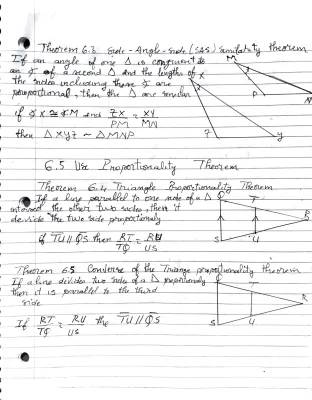 Theorem 6.3 Side - Angle - Side (SAS) Similarity theorem
If an angle of one Δ is congruent to
an ∡ of a second Δ and the lengths of
The sides including these ∡ are
proportional, then the Δ are similar
M
X
P
N
Z
Y
if ∡ X ≅ ∡M and ZX/PM = XY/MN
then Δ XYZ ~ Δ MNP
6.5 Use Proportionality Theorem
Theorem 6.4 Triangle Proportionality Theorem
If a line parallel to one side of a Δ
the other two sides, then it
devide the two side proportionaly
Q
T
R
S
U
If TU // QS then RT/TQ = RU/US
Theorem 6.5 Converse of the Triange proportionality theorem
If a line divides two sides of a Δ proportionaly
then it is parallel to the third
side
Q
T
R
S
U
If RT/TQ = RU/US the TU // QS